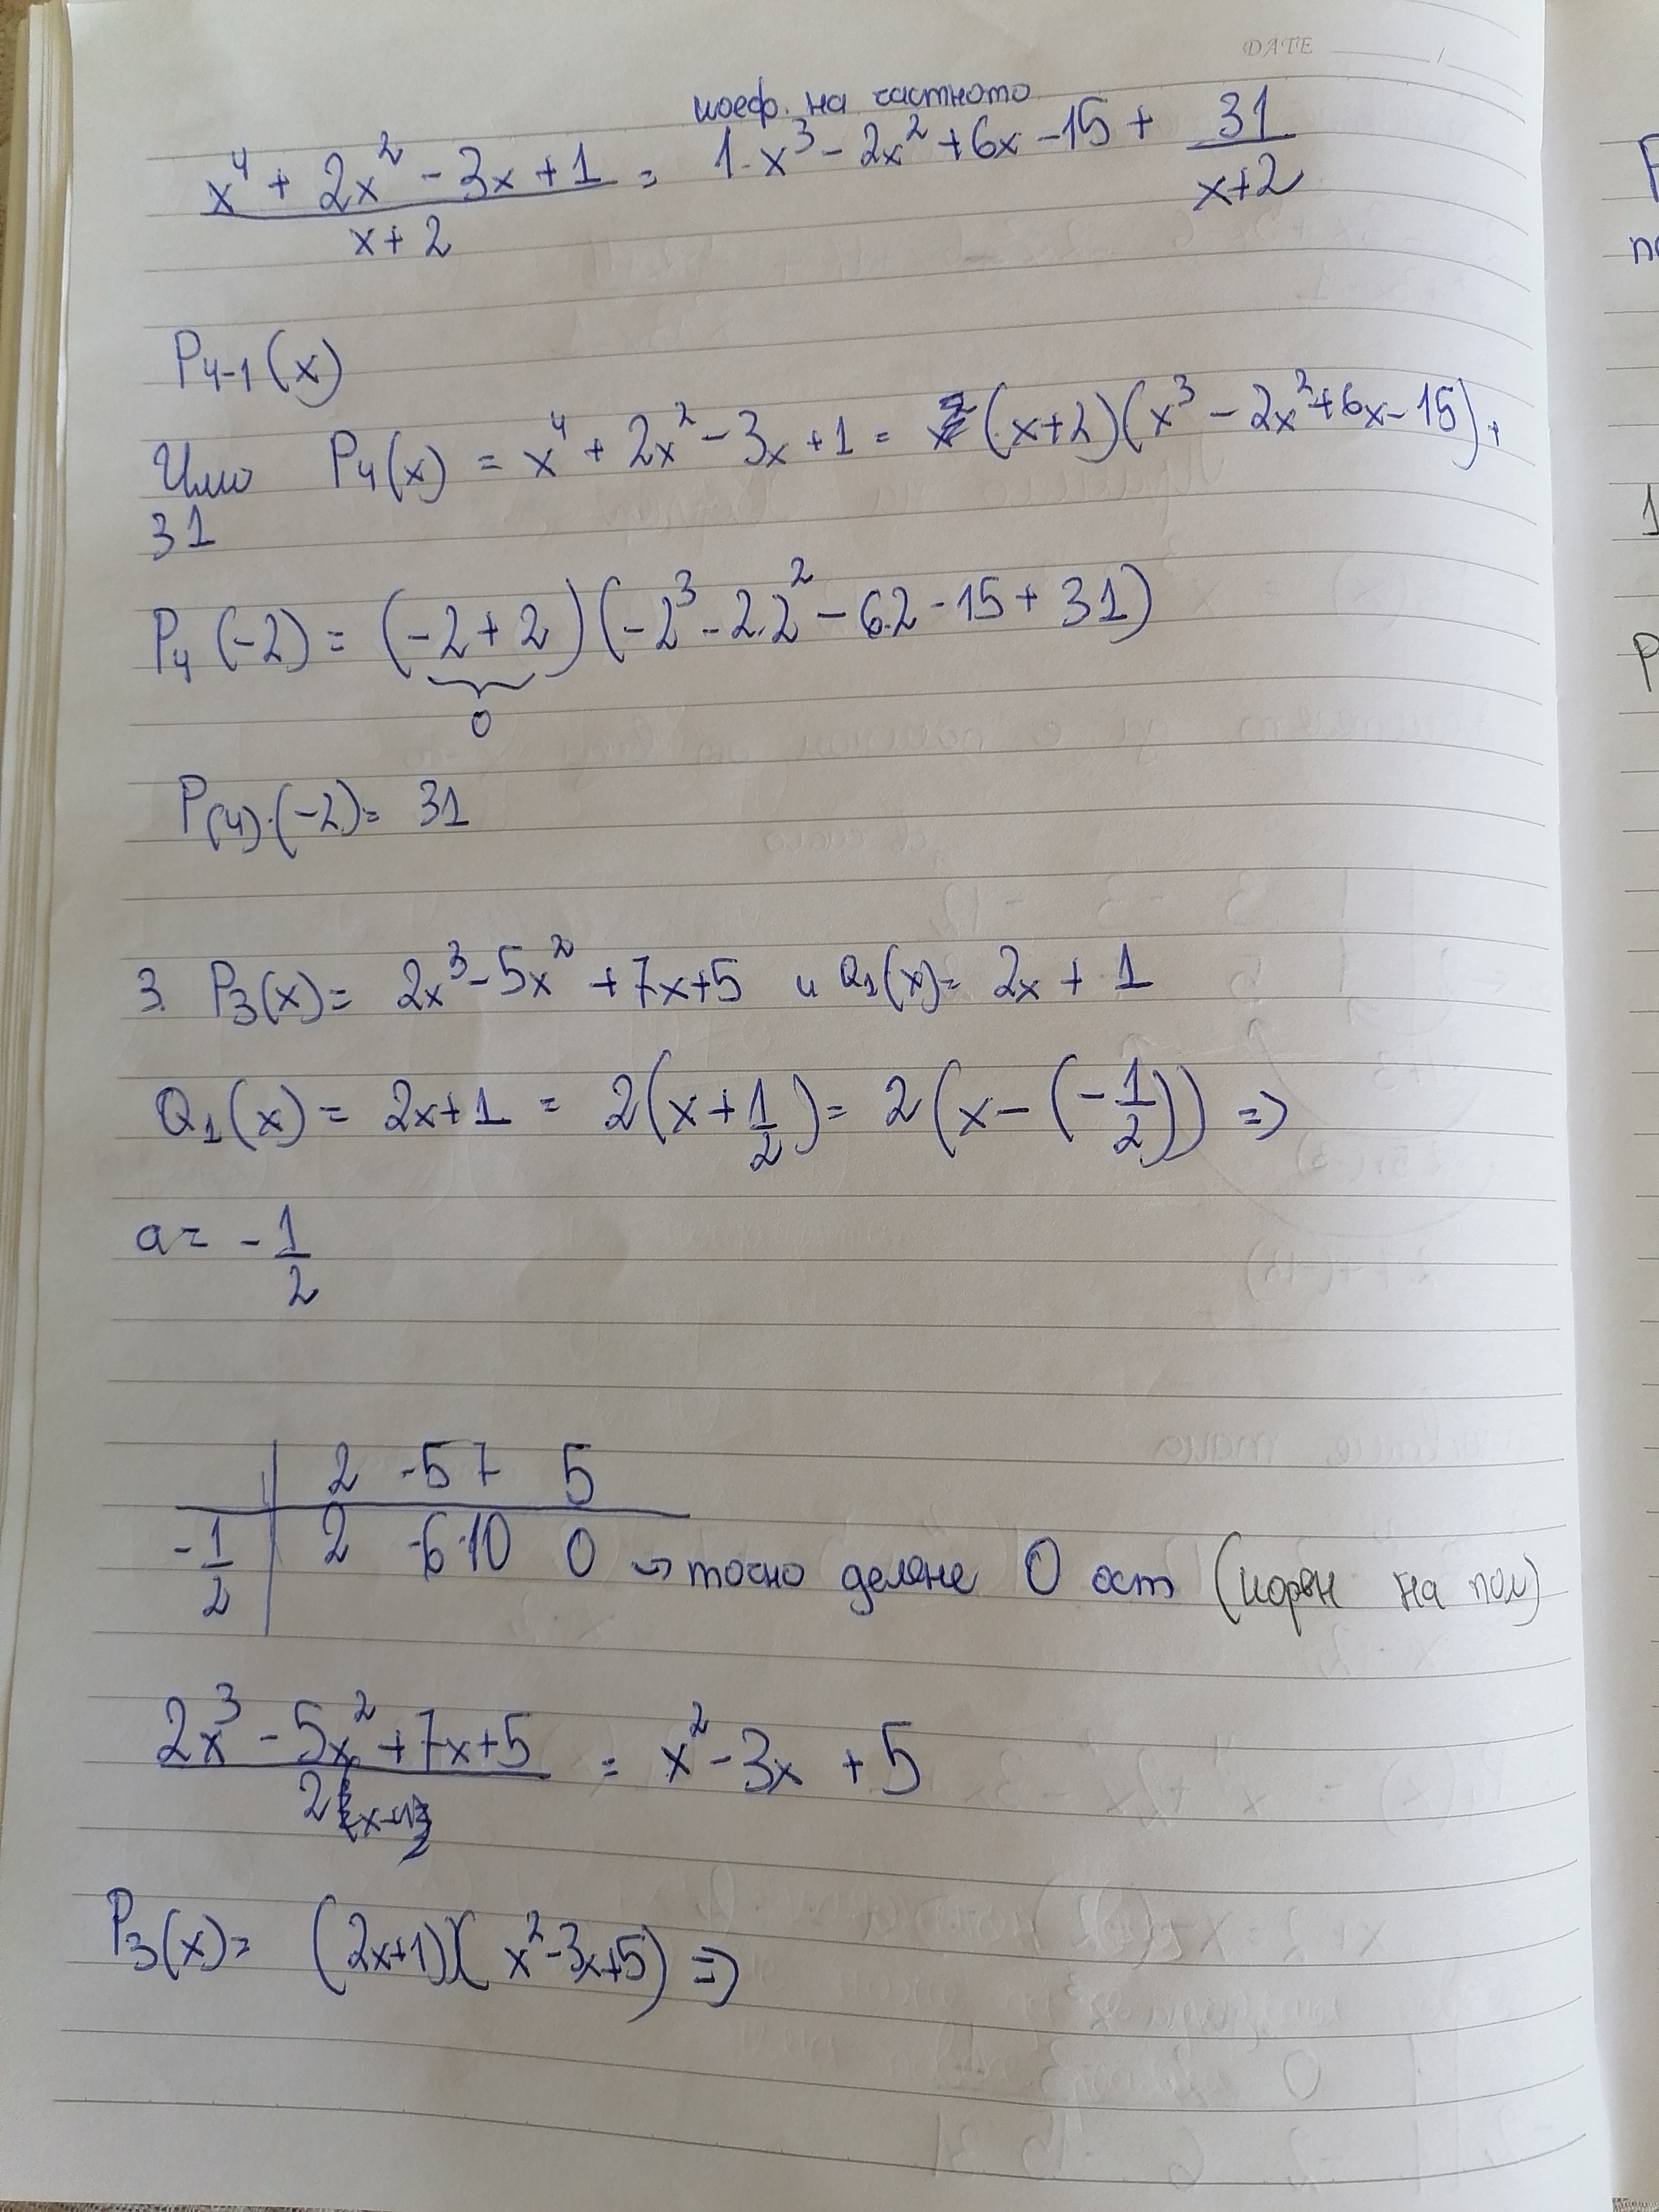 DATE
коеф. на частното
x⁴ + 2x² - 3x + 1 / x + 2 = 1·x³ - 2x² + 6x - 15 + 31 / x+2
P₄₋₁(x)
Или P₄(x) = x⁴ + 2x² - 3x + 1 = (x+2)(x³ - 2x² + 6x - 15) +
31
P₄(-2) = (-2 + 2)(-2³ - 2.2² - 6.2 - 15 + 31)
0
P₍₄₎.(-2) = 31
3. P₃(x) = 2x³ - 5x² + 7x + 5 и Q₁(x) = 2x + 1
Q₁(x) = 2x+1 = 2(x + 1/2) = 2(x - (-1/2)) =>
a = - 1/2
2 -5 7 5
-1/2 2 -6 10 0 → точно деляне 0 ост (корен на пол)
2x³ - 5x² + 7x + 5 / 2 = x² - 3x + 5
P₃(x) = (2x+1)(x² - 3x + 5) =>